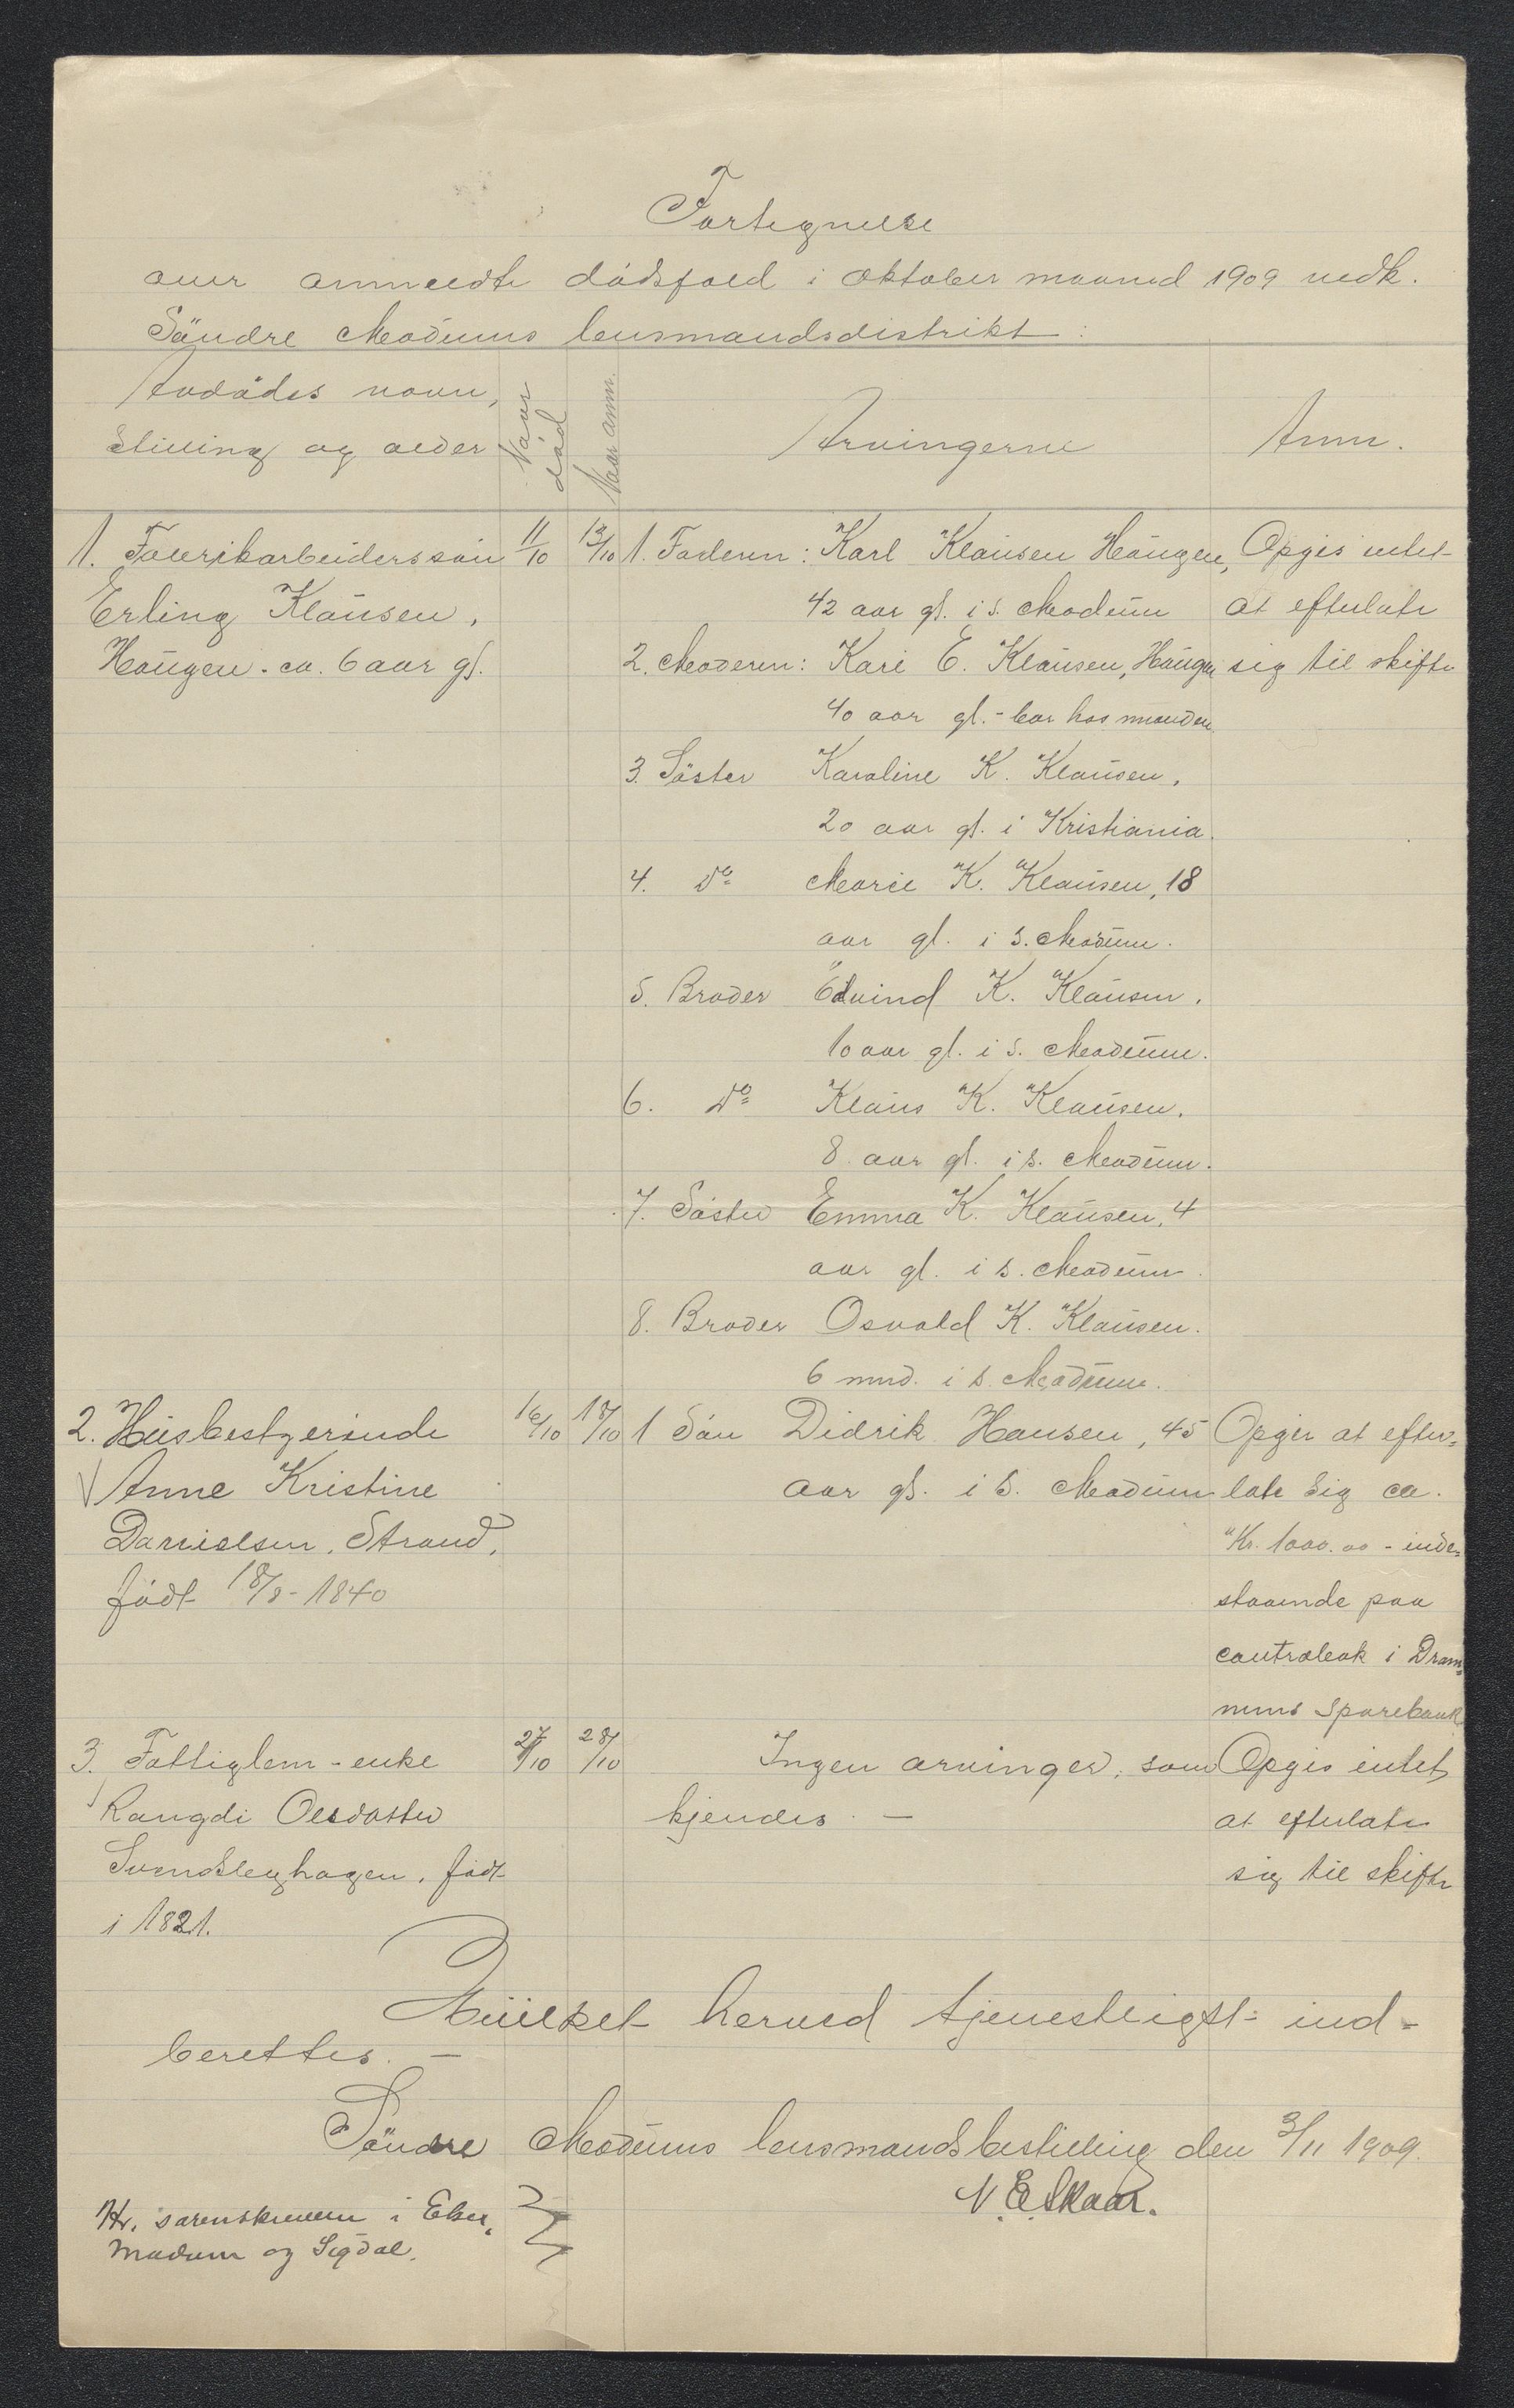 Fortegnelse
over anmeldte dödsfald i oktober maaned 1909 vedk.
Söndre Modums lensmandsdistrikt:
Avdödes navn,
stilling og alder
Naar
död
Naar anm.
Arvingerne
Anm.
1. Fabrikarbeiderssön
Erling Klausen,
Haugen - ca. 6 aar gl.
11/10
13/10
1. Faderen: Karl Klausen Haugen,
42 aar gl. i S. Modum
2. Moderen: Kari E. Klausen, Haugen
40 aar gl. - bor hos manden
3. Söster Karoline K. Klausen,
20 aar gl. i Kristiania.
4. Do Marie K. Klausen, 18
aar gl. i S. Modum.
5. Broder Edvind K. Klausen,
10 aar gl. i S. Modum.
6. Do Klaus K. Klausen,
8 aar gl. i S. Modum.
7. Söster Emma K. Klausen, 4
aar gl. i S. Modum
8. Broder Osvald K. Klausen.
6 mnd. i S. Modum.
Opgis intet
at efterlate
sig til skifte
2. Husbestyrerinde
Anne Kristine
Danielsen, Strand,
födt 18/8 - 1840
16/10
18/10
1 Sön Didrik Hansen, 45
aar gl. i S. Modum
Opgir at efter-
late sig ca.
Kr. 1000.00 - inde-
staaende paa
contrabok i Dram-
mens Sparebank
3. Fattiglem - enke
Rangdi Olsdatter
födt
i 1821.
27/10
28/10
Ingen arvinger, som
kjendes. -
Opgis intet
at efterlate
sig til skifte
Hvilket herved tjenestligst ind-
berettes. -
Söndre Modums lensmandsbestilling den 3/11 1909.
N. E. Skaar.
Hr. sorenskriveren i Eker,
Modum og Sigdal.